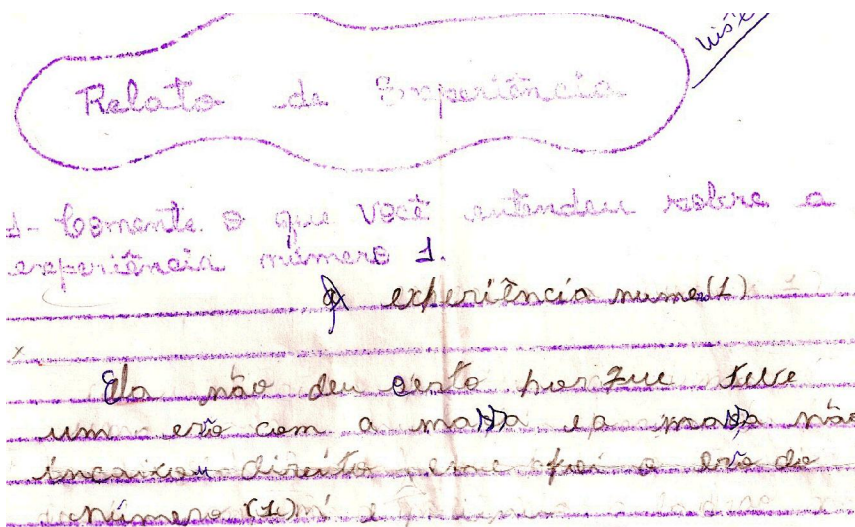 visto
Relato de Experiência
1- Comente o que Você entendeu sobre a
experiência número 1.
A experiência nume(1)
Ela não deu certo por que teve
um erro com a massa e a massa não
incaixou direito esse foi o erro do
número (1)